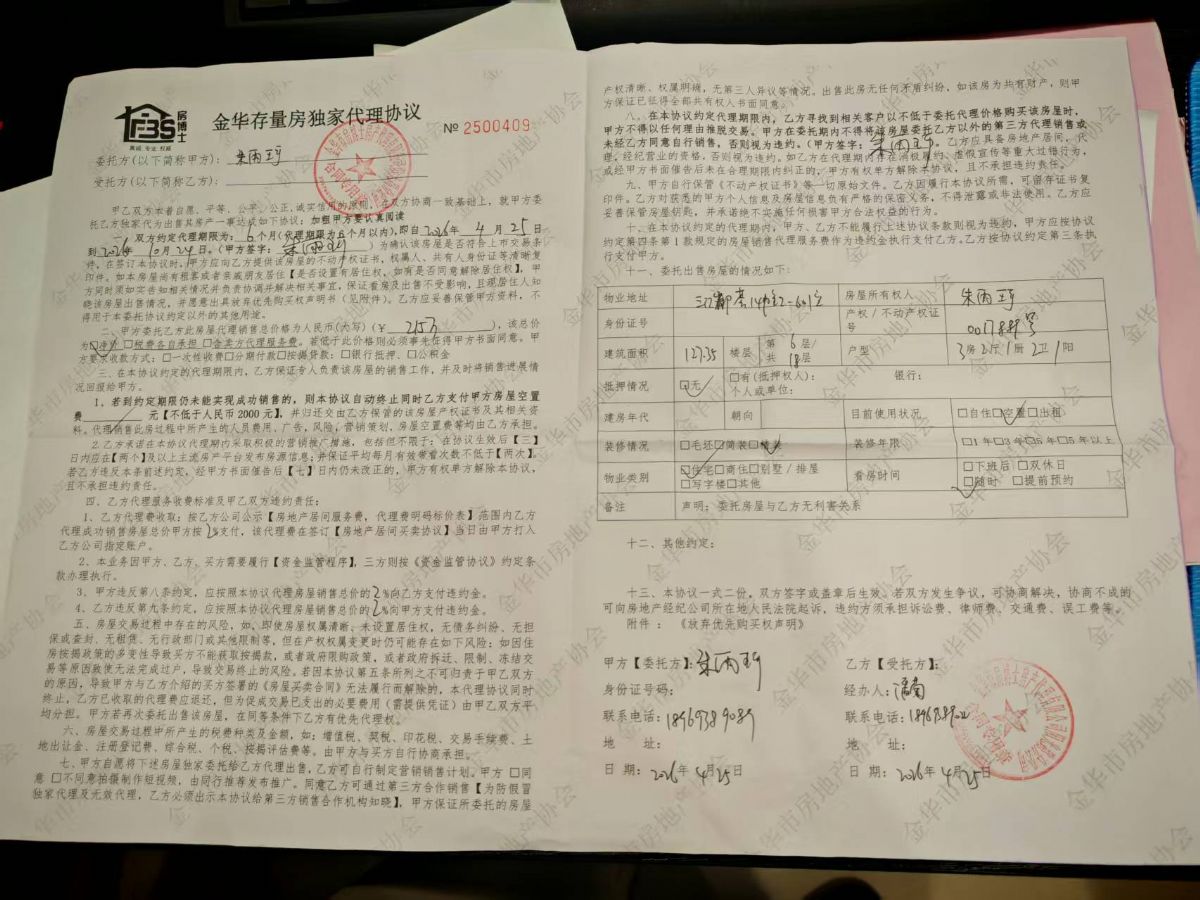 FBS
房博士
真诚 专业 权威
金华存量房独家代理协议
№ 2500409
委托方(以下简称甲方):
受托方(以下简称乙方):
甲乙双方本着自愿、平等、公平、公正、诚实信用的原则,在双方协商一致基础上,就甲方委
托乙方独家代为出售其房产一事达成如下协议:加粗甲方要认真阅读
一、双方约定代理期限为: 6 个月(代理期限为6个月以内),即自 2026年 4 月 25 日
到 2026年 10月 24日。(甲方签字: )为确认该房屋是否符合上市交易条
件,在签订本协议时,甲方应向乙方提供该房屋的不动产权证书,权属人、共有人身份证等清晰复
印件。如本房屋尚有租客或者亲戚朋友居住【是否设置有居住权,如有是否同意解除居住权】,甲
方同时须如实告知相关情况并负责协调并解决相关事宜,保证看房及出售不受影响,且现居住人知
晓该房屋出售情况,并愿意出具放弃优先购买权声明书(见附件)。乙方应妥善保管甲方资料,不
得用于本委托协议约定以外的其他用途。
二、甲方委托乙方此房屋代理销售总价格为人民币(大写)(¥ 215万 ),该总价
为□净价 □税费各自承担 □含卖方代理服务费。若低于此价格则必须事先征得甲方书面同意。甲
方要求收款方式:□一次性收费□分期付款□按揭贷款;□银行抵押、□公积金
三、在本协议约定的代理期限内,乙方保证专人负责该房屋的销售工作,并及时将销售进展情
况回报给甲方。
1、若到约定期限仍未能实现成功销售的,则本协议自动终止同时乙方支付甲方房屋空置
费 / 元【不低于人民币2000元】,并归还交由乙方保管的该房屋产权证书及其相关资
料。代理销售此房过程中所产生的人员费用,广告,风险,营销策划,房屋空置费等均由乙方承担。
2.乙方承诺在本协议代理期内采取积极的营销推广措施,包括但不限于:在协议生效后【三】
日内应在【两个】及以上主流房产平台发布房源信息;并保证平均每月有效带看次数不低于【两次】。
若乙方违反本条前述约定,经甲方书面催告后【七】日内仍未改正的,甲方有权单方解除本协议,
且不承担违约责任。
四、乙方代理服务收费标准及甲乙双方违约责任:
1、乙方代理费收取:按乙方公司公示【房地产居间服务费,代理费明码标价表】范围内乙方
代理成功销售房屋总价甲方按 2%支付,该代理费在签订【房地产居间买卖协议】当日由甲方打入
乙方公司指定账户。
2、本业务因甲方、乙方、买方需要履行【资金监管程序】,三方则按《资金监管协议》约定条
款办理执行。
3、甲方违反第八条约定,应按照本协议代理房屋销售总价的2%向乙方支付违约金。
4、乙方违反第九条约定,应按照本协议代理房屋销售总价的2%向甲方支付违约金。
五、房屋交易过程中存在的风险,如、即使房屋权属清晰、未设置居住权,无债务纠纷、无担
保或查封、无租赁、无行政部门或其他限制等,但在产权权属变更时仍可能存在如下风险:如因住
房按揭政策的多变性导致买方不能获取按揭款,或者政府限购政策,或者政府拆迁、限制、冻结交
易等原因致使无法完成过户,导致交易终止的风险。若因本协议第五条所列之不可归责于甲乙双方
的原因,导致甲方与乙方介绍的买方签署的《房屋买卖合同》无法履行而解除的,本代理协议同时
终止,乙方已收取的代理费应退还,但为促成交易已支出的必要费用(需提供凭证)由甲乙双方平
均分担。 甲方若再次委托出售该房屋,在同等条件下乙方有优先代理权。
六、房屋交易过程中所产生的税费种类及金额,如:增值税、契税、印花税、交易手续费、土
地出让金、注册登记费、综合税、个税、按揭评估费等。由甲方与买方自行协商承担。
七、甲方自愿将下述房屋独家委托给乙方代理出售,乙方可自行制定营销销售计划。甲方 □同
意 □不同意拍摄制作短视频,由同行推荐发布推广。同意乙方可通过第三方合作销售【为防假冒
独家代理及无效代理,乙方必须出示本协议给第三方销售合作机构知晓】,甲方保证所委托的房屋
产权清晰、权属明确,无第三人异议等情况。出售此房无任何矛盾纠纷,如该房为共有财产,则甲
方保证已征得全部共有权人书面同意。
八、在本协议约定代理期限内,乙方寻找到相关客户以不低于委托代理价格购买该房屋时,
甲方不得以任何理由推脱交易。甲方在委托期内不得将该房屋委托乙方以外的第三方代理销售或
未经乙方同意自行销售,否则视为违约。(甲方签字: )。乙方应具备房地产居间,代
理,经纪营业的资格,否则视为违约。如乙方在代理期内存在消极履约、虚假宣传等重大过错行为,
或经甲方书面催告后未在合理期限内纠正的,甲方有权单方解除本协议,且不承担违约责任。
九、甲方自行保管《不动产权证书》等一切原始文件。乙方因履行本协议所需,可留存证书复
印件。乙方对获悉的甲方个人信息及房屋信息负有严格的保密义务,不得泄露或非法使用。乙方应
妥善保管房屋钥匙,并承诺绝不实施任何损害甲方合法权益的行为。
十、在本协议约定的代理期内,甲方、乙方不能履行上述协议条款则视为违约,甲方应按协议
约定第四条第1款规定的房屋销售代理服务费作为违约金执行支付乙方。乙方按协议约定第三条执
行支付甲方。
十一、委托出售房屋的情况如下:
物业地址 房屋所有权人
身份证号 产权/不动产权证号 0017889号
建筑面积 127.35 楼层 第 6 层/共 18层 户型 3房2厅1厨2卫1阳
抵押情况 □无 □有(抵押权人): 银行:
个人或单位:
建房年代 朝向 目前使用状况 □自住□空置□出租
装修情况 □毛坯□简装□精装 装修年限 □1年□3年□5年□5年以上
物业类别 □住宅□商住□别墅/排屋
□写字楼□其他
看房时间 □下班后□双休日
□随时 □提前预约
备注 声明:委托房屋与乙方无利害关系
十二、其他约定:
十三、本协议一式二份,双方签字或盖章后生效。若双方发生争议,可协商解决,协商不成的
可向房地产经纪公司所在地人民法院起诉,违约方须承担诉讼费、律师费、交通费、误工费等。
附件:《放弃优先购买权声明》
甲方【委托方】: 乙方【受托方】:
身份证号码: 经办人:
联系电话:18969389089 联系电话:
地 址: 地 址:
日 期:2026年 4月25日 日 期:2026年 4月25日
金华市房地产协会